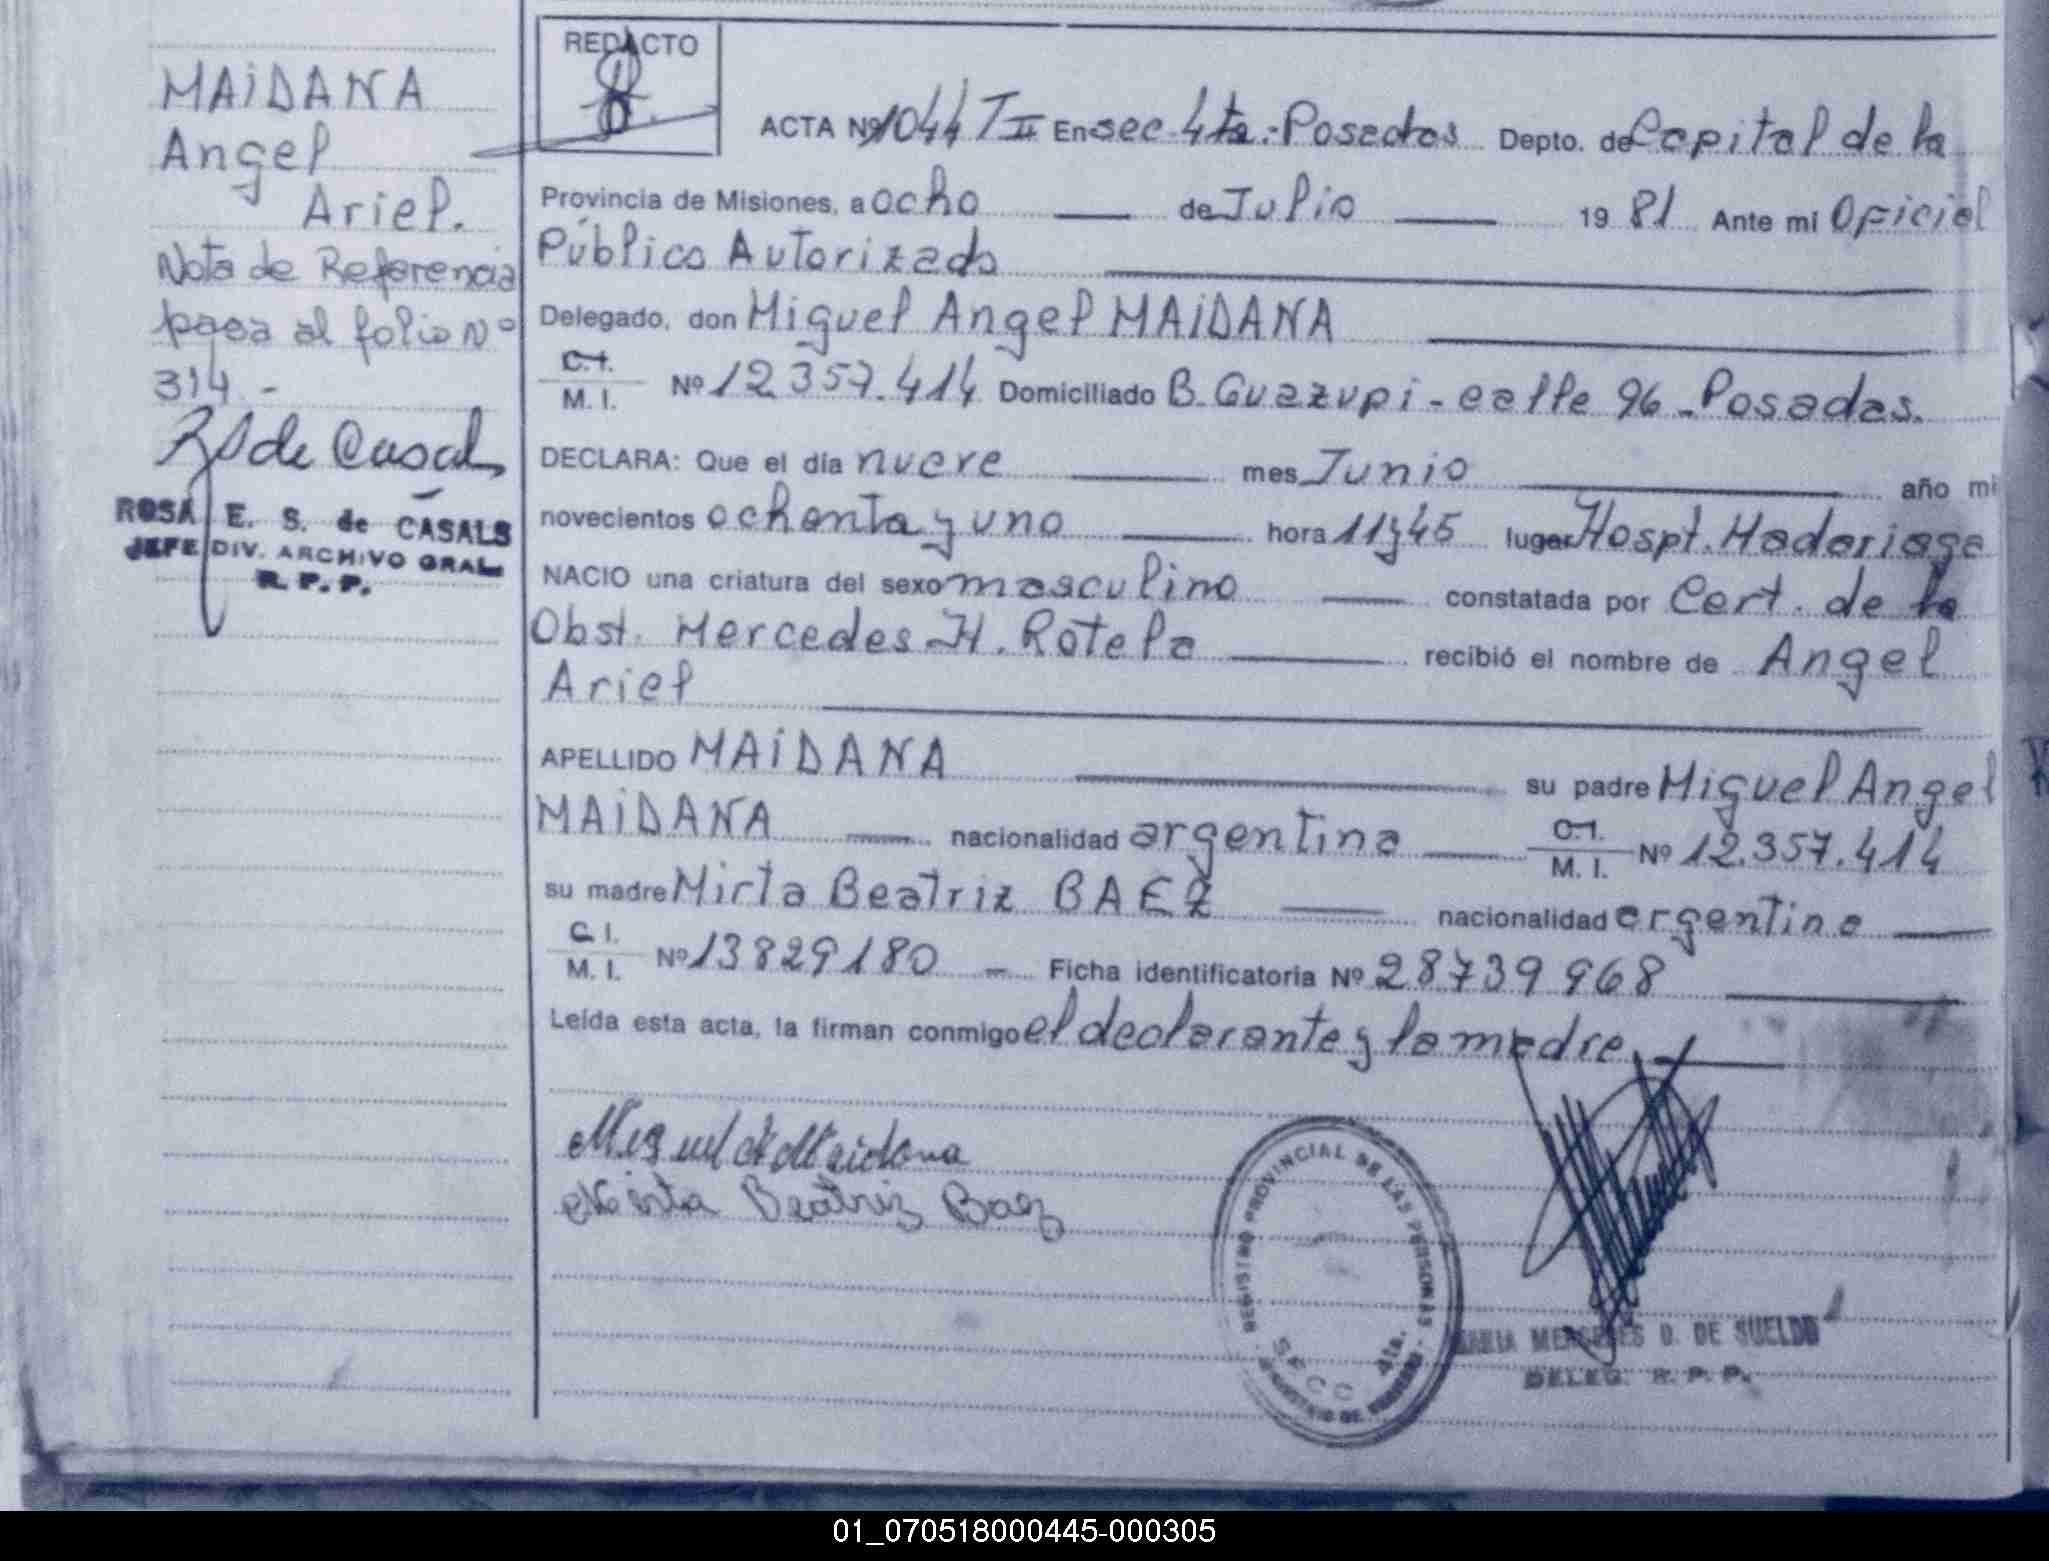 MAIDANA
Angel
Ariel.
Nota de Referencia
pasa al folio Nº
314.-
RS de Casals
ROSA E. S. de CASALS
JEFE DIV. ARCHIVO GRAL.
R. P. P.
REDACTO
ACTA Nº 1044 T II En sec. 4ta.-Posadas Depto. de Capital de la
Provincia de Misiones, a ocho de Julio 19 81 Ante mi Oficial
Público Autorizado
Delegado, don Miguel Angel MAIDANA
C.I. M. I. Nº 12.357.414 Domiciliado B. Guazupi - calle 96 - Posadas.
DECLARA: Que el día nueve mes Junio año mi
novecientos ochenta y uno hora 11y45 lugar Hospt. Madariaga
NACIO una criatura del sexo masculino constatada por Cert. de la
Obst. Mercedes H. Rotela recibió el nombre de Angel
Ariel
APELLIDO MAIDANA su padre Miguel Angel
MAIDANA nacionalidad argentina C.I. M. I. Nº 12.357.414
su madre Mirta Beatriz BAEZ nacionalidad argentina
C.I. M. I. Nº 13829180 - Ficha identificatoria Nº 28739968
Leída esta acta, la firman conmigo el declarante y la madre.
Miguel A Maidana
Mirta Beatriz Baez
REGISTRO PROVINCIAL DE LAS PERSONAS
4ta.
MARIA MERCEDES D. DE SUELDO
DELEG. R. P. P.
01_070518000445-000305